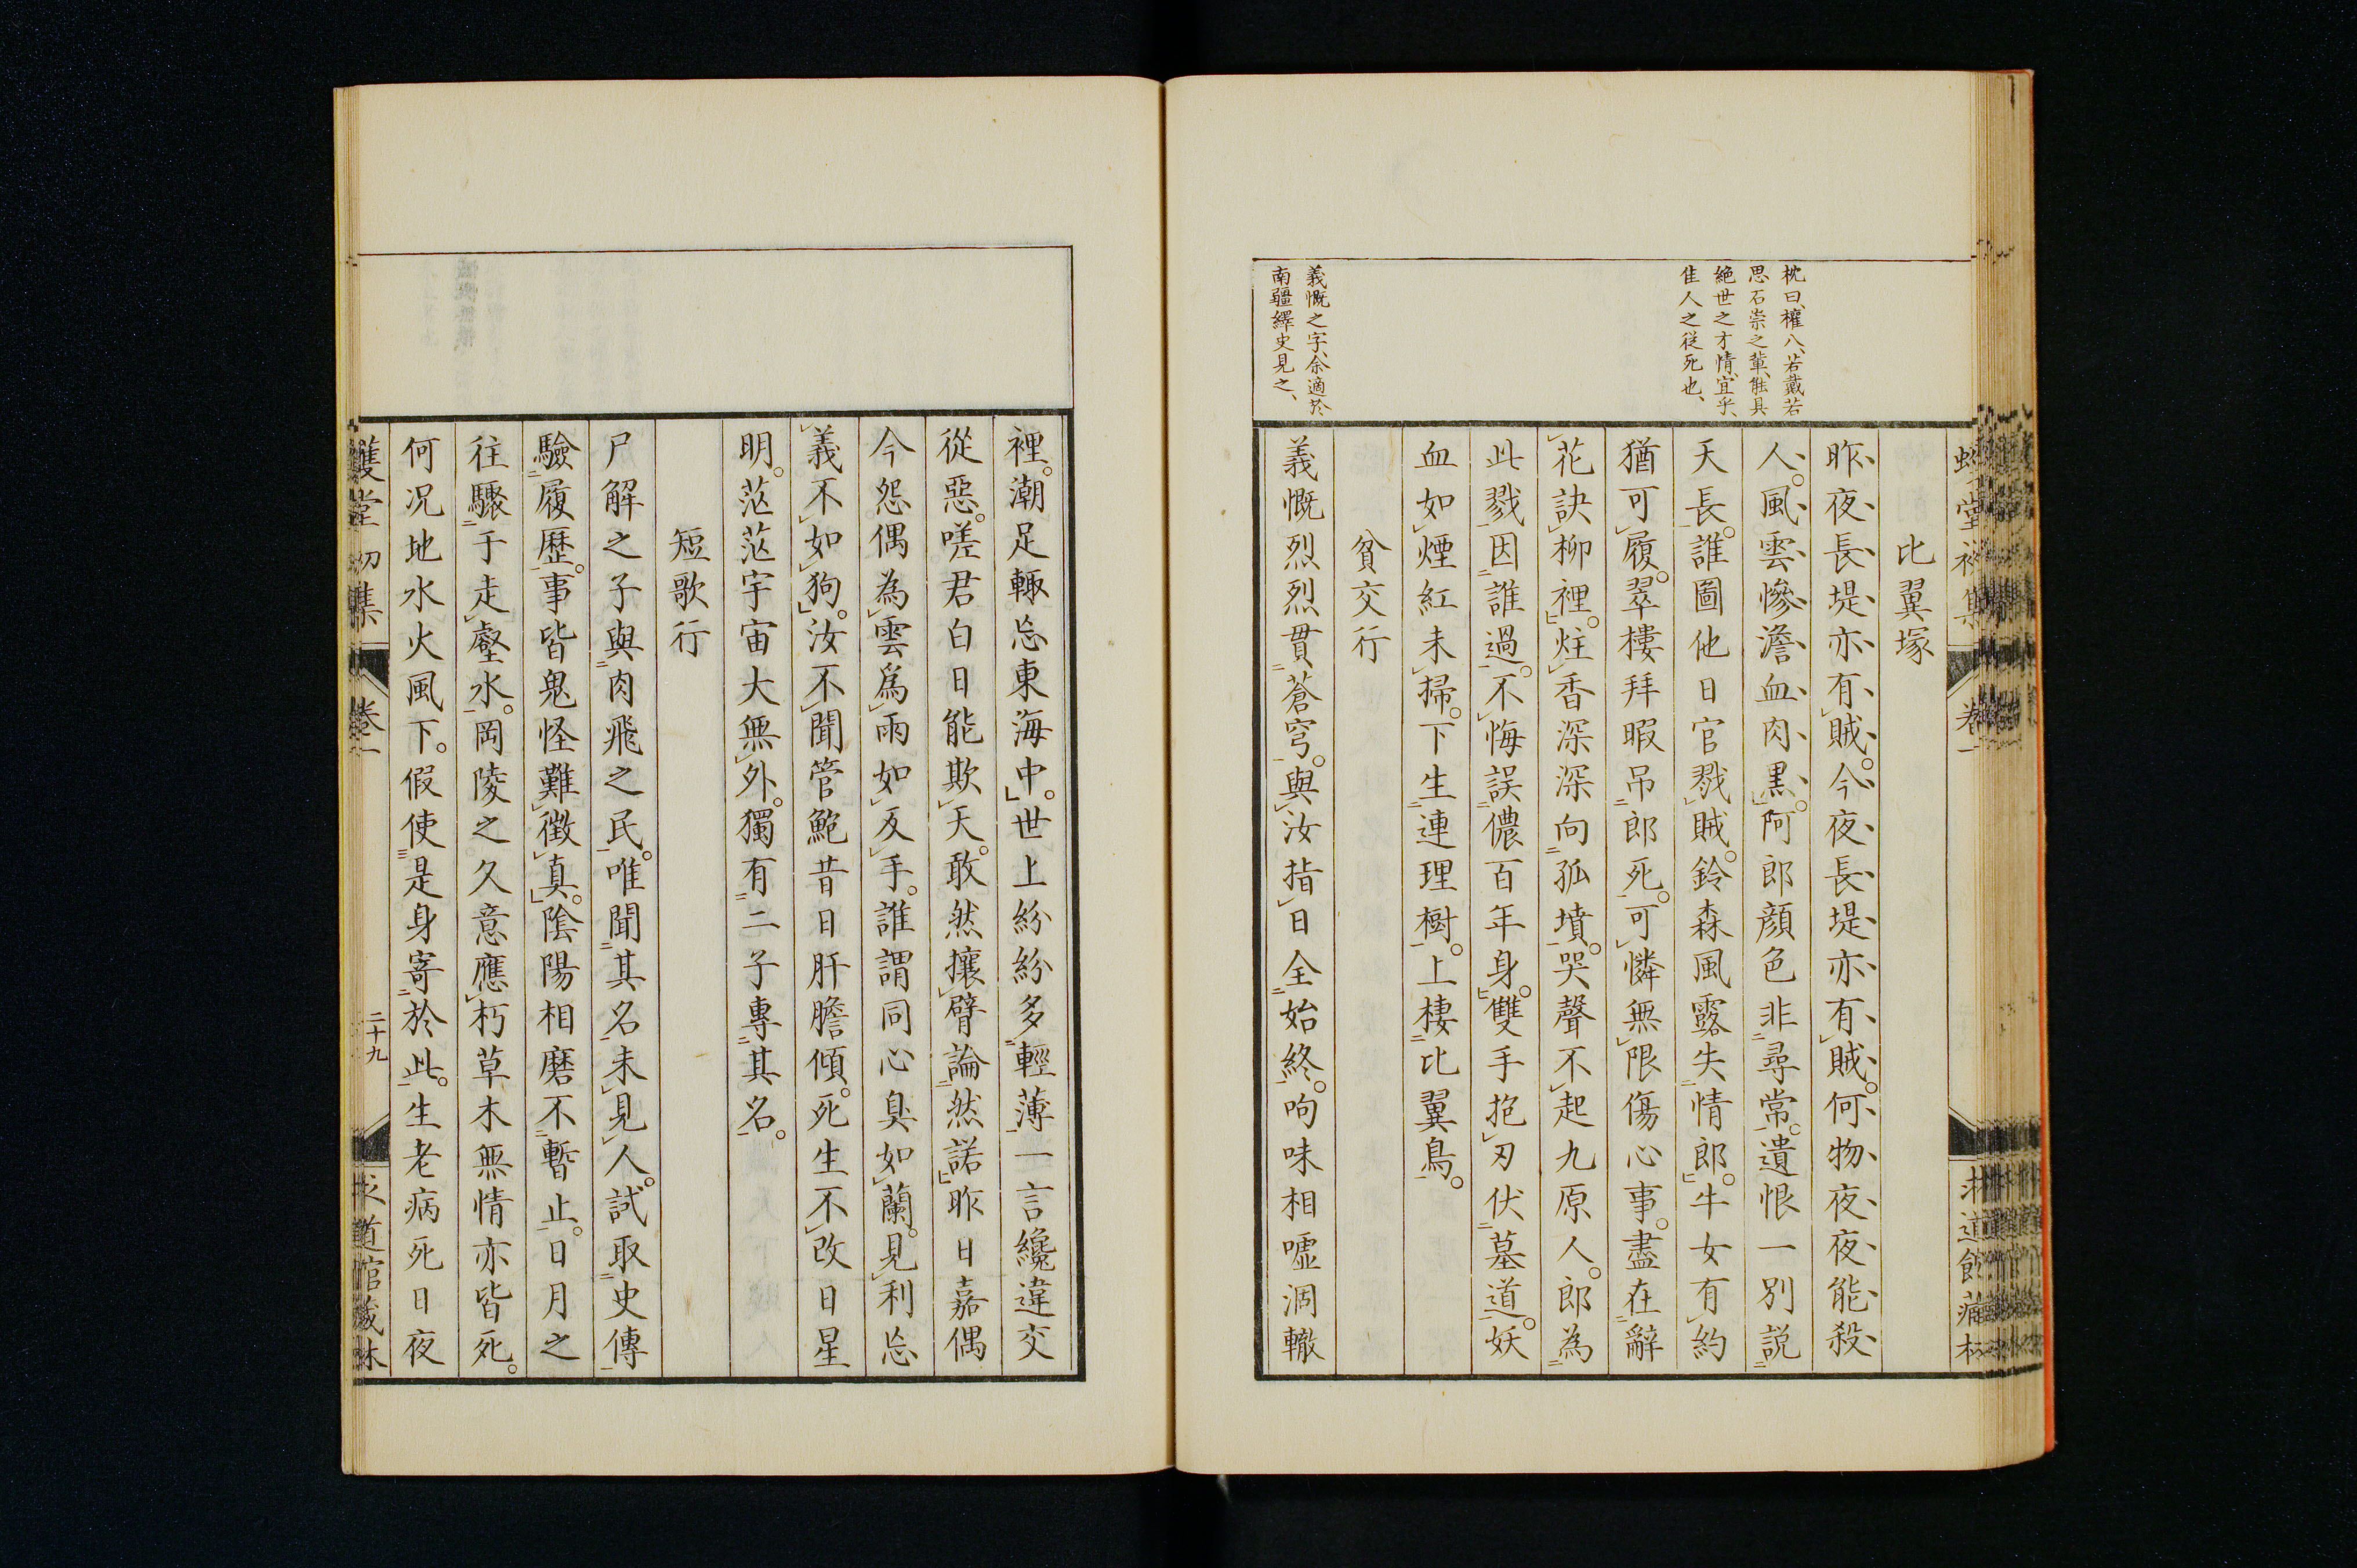 比翼塚
昨夜長堤亦有賊。今夜長堤亦有賊。何物夜夜能殺
人。風雲慘澹血肉黑。阿郎顔色非尋常。遺恨一別説
天長。誰圖他日官戮賊。鈴森風露失情郎。牛女有約
猶可履。翠樓拜暇吊郎死。可憐無限傷心事。盡在辭
花訣柳裡。炷香深深向孤墳。哭聲不起九原人。郎為
此戮因誰過。不悔誤儂百年身。雙手抱刃伏墓道。妖
血如煙紅未掃。下生連理樹。上棲比翼鳥。
貧交行
義慨烈烈貫蒼穹。與汝指日全始終。呴味相噓涸轍
枕曰、權八、若戴若
思石崇之輩、能具
絶世之才情、宜乎、
佳人之從死也、
義慨之字、余適於
南疆繹史見之、
堂初集
卷一
裡。潮足輙忘東海中。世上紛紛多輕薄一言纔違交
從惡。嗟君白日能欺天。敢然攘臂論然諾昨日嘉偶
今怨偶為雲爲雨如反手。誰謂同心臭如蘭。見利忘
義不如狗。汝不聞管鮑昔日肝膽傾。死生不改日星
明。茫茫宇宙大無外。獨有二子專其名。
短歌行
尸解之子與肉飛之民。唯聞其名未見人。試取史傳
驗履歷。事皆鬼怪難徵真。陰陽相磨不暫止。日月之
往驟于走壑水。岡陵之久意應朽草木無情亦皆死。
何況地水火風下。假使是身寄於此。生老病死日夜
堂初集
卷一
二十九
道館藏